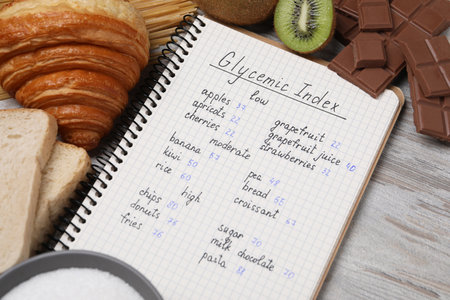 Glycemic Index
low
apples
apricots 22
cherries 22
grapefruit 22
grapefruit juice
strawberries 32
moderate
banana
kiwi 50
rice 60
pea 48
bread
croissant 67
high
chips
donuts 76
fries
sugar 70
milk chocolate 70
pasta